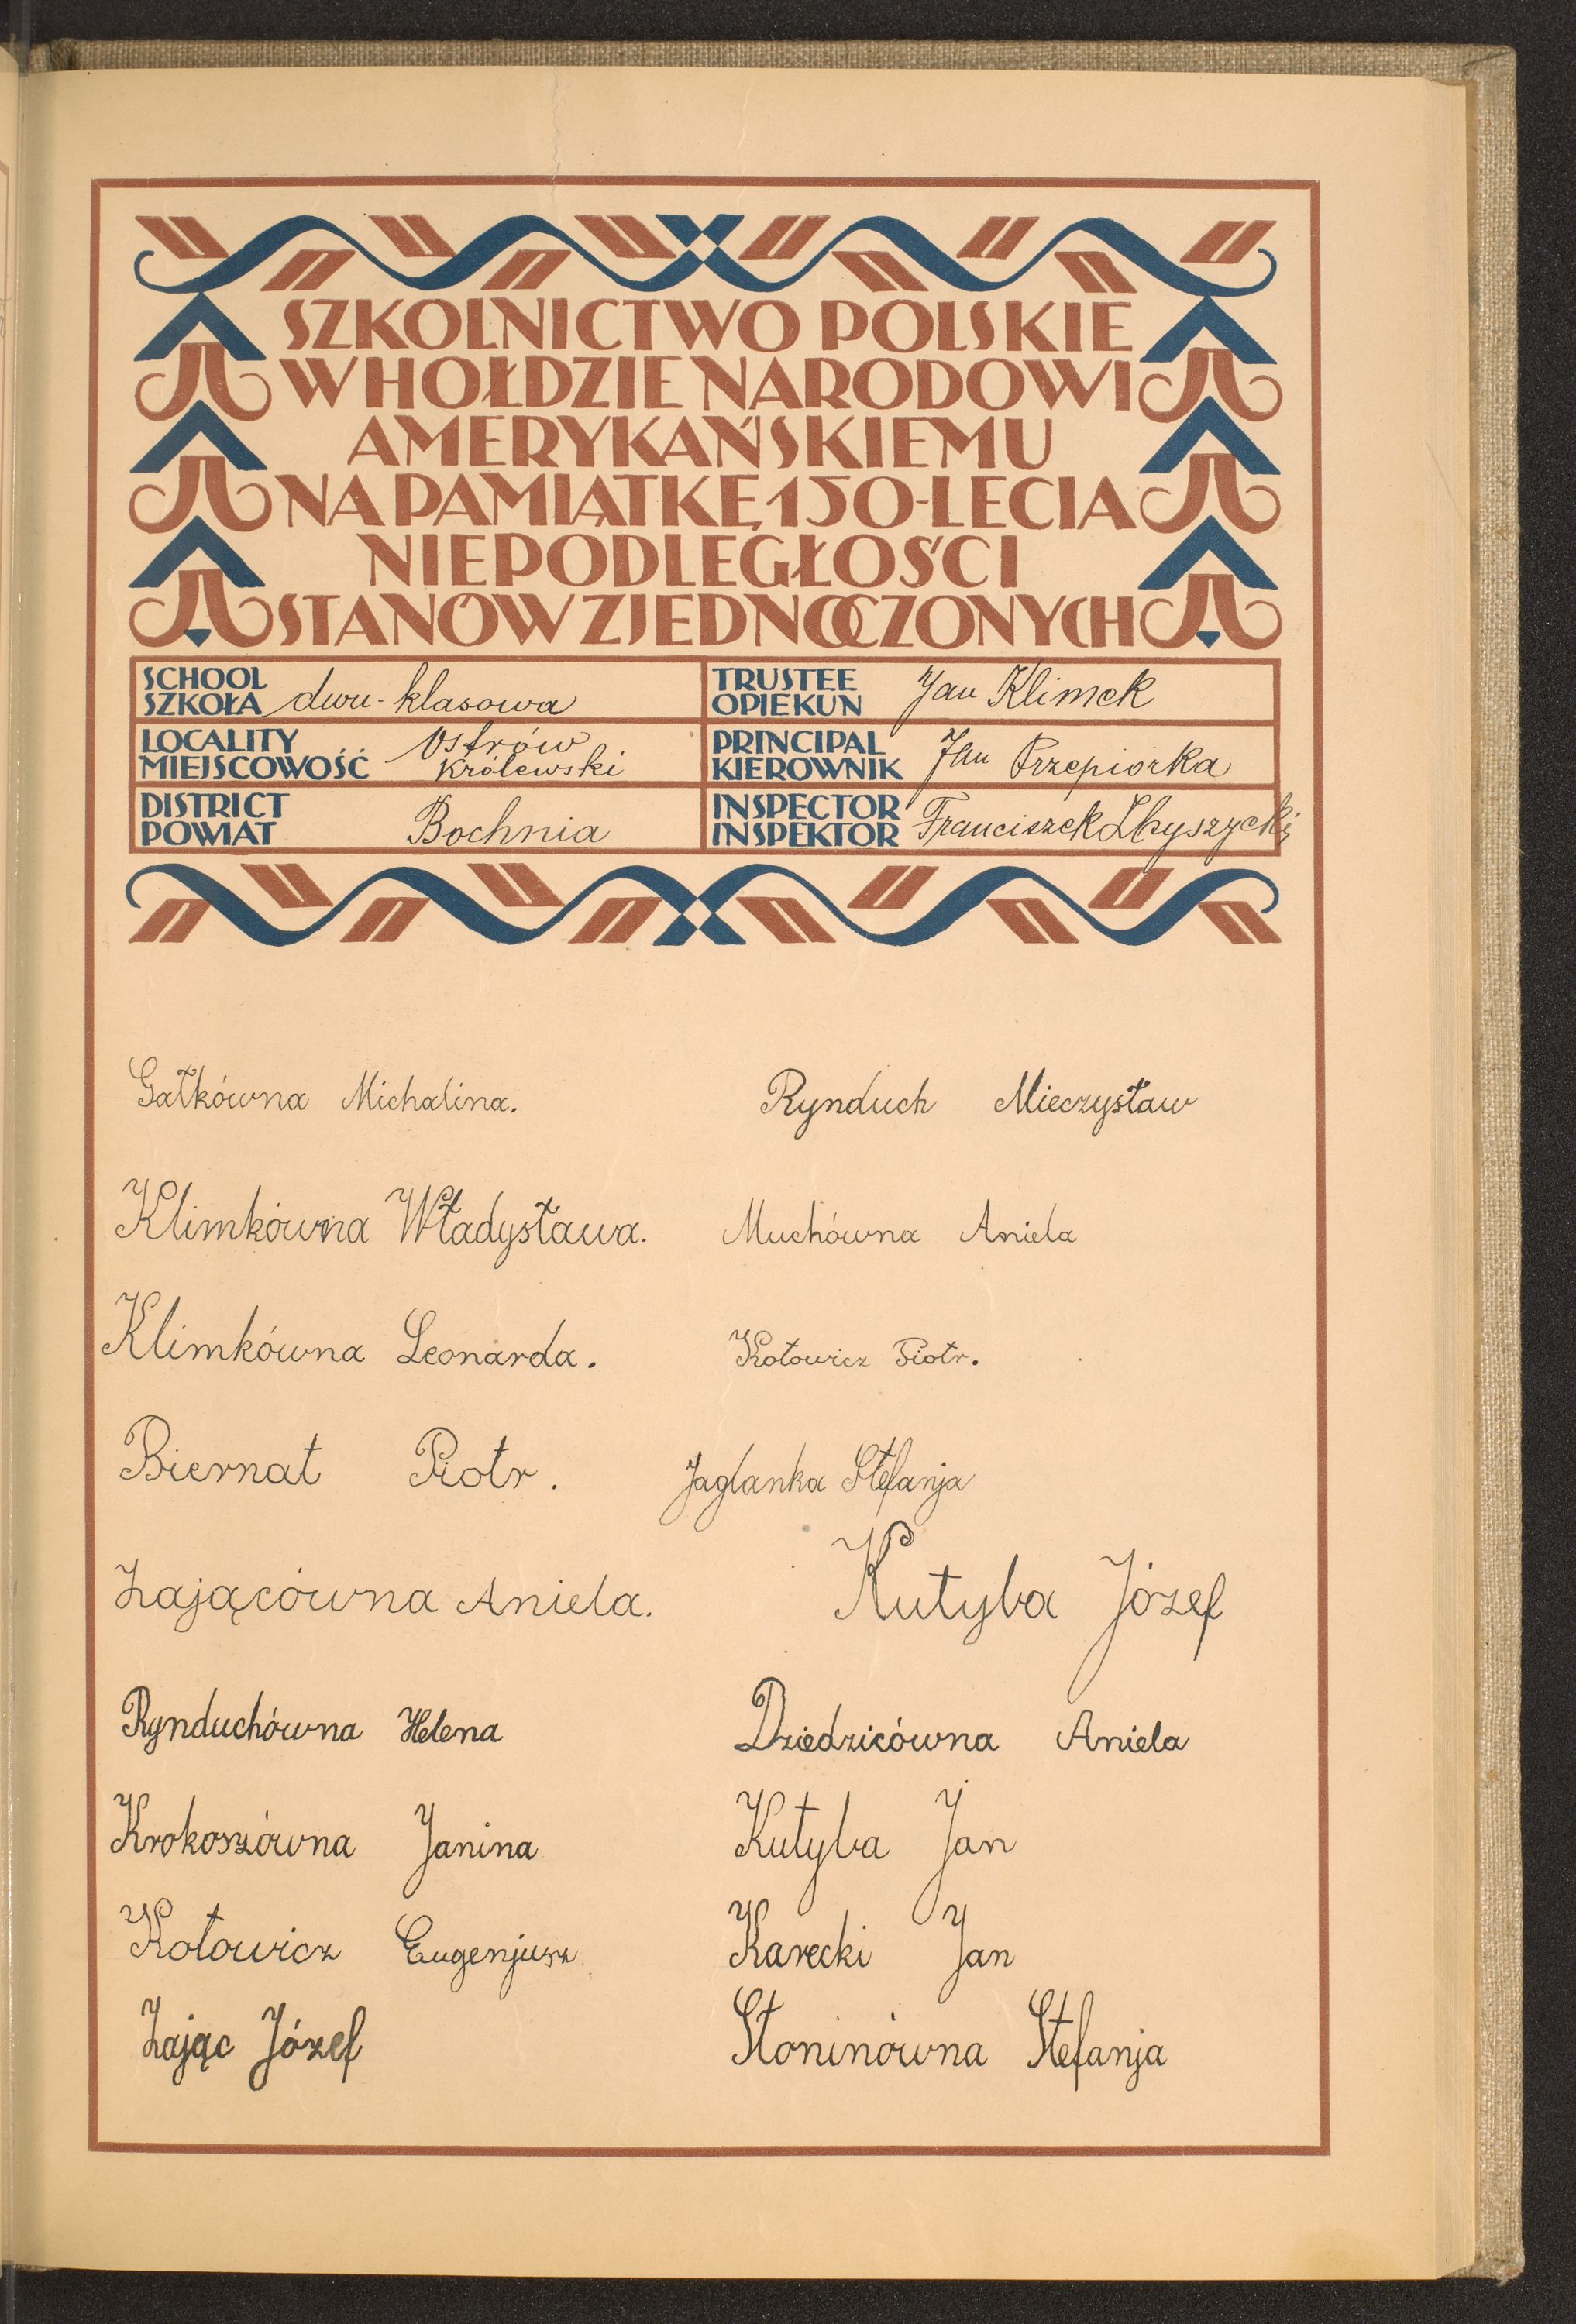 SZKOLNICTWO POLSKIE
W HOŁDZIE NARODOWI
AMERYKAŃSKIEMU
NA PAMIĄTKĘ 150-LECIA
NIEPODLEGŁOŚCI
STANÓW ZJEDNOCZONYCH
SCHOOL
SZKOŁA dwu-klasowa
TRUSTEE
OPIEKUN Jan Klimek
LOCALITY
MIEJSCOWOŚĆ Ostrów
Królewski
PRINCIPAL
KIEROWNIK Jan Przepiorka
DISTRICT
POWIAT Bochnia
INSPECTOR
INSPEKTOR Franciszek
Gałkówna Michalina.
Klimkówna Władysława.
Klimkówna Leonarda.
Biernat Piotr.
Zającówna Aniela.
Rynduchówna Helena
Krokoszówna Janina
Kołowicz Eugenjusz
Zając Józef
Rynduch Mieczysław
Muchówna Aniela
Kołowicz Piotr.
Jaglanka Stefanja
Kutyba Józef
Dziedzicówna Aniela
Kutyba Jan
Karecki Jan
Słoninówna Stefanja